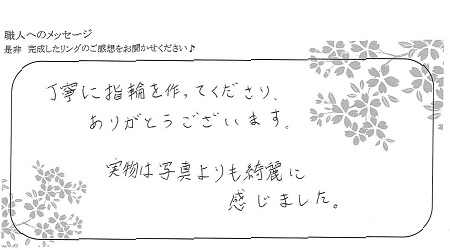 職人へのメッセージ
是非 完成したリングのご感想をお聞かせください♪
丁寧に指輪を作ってくださり、
ありがとうございます。
実物は写真よりも綺麗に
感じました。